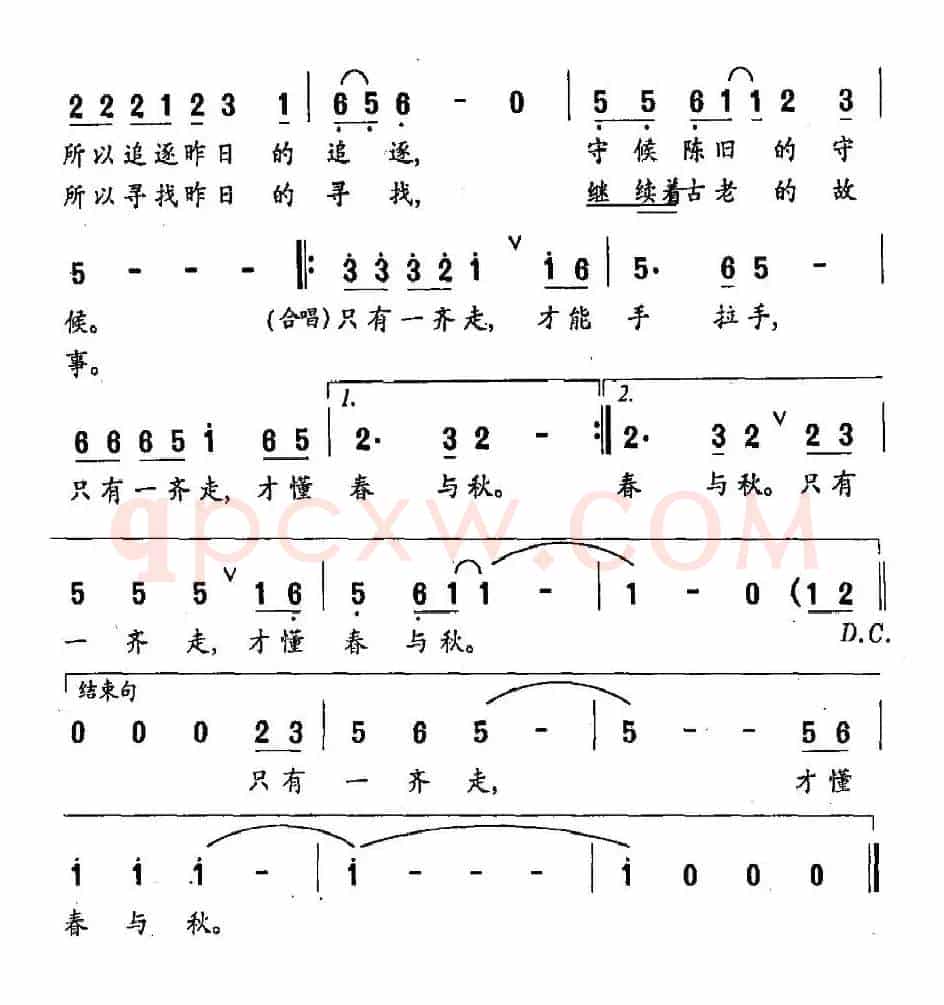 2 2 2 1 2 3 1 | 6 5 6 - 0 | 5 5 6 1 1 2 3 |
所以追逐昨日 的 追 逐, 守 候 陈旧 的 守
所以寻找昨日 的 寻 找, 继 续着古老 的 故
5 - - - ‖: 3 3 3 2 1 ∨ 1 6 | 5· 6 5 - |
候。 (合唱)只有一齐走, 才能 手 拉手,
事。
1. 2.
6 6 6 5 1 6 5 | 2· 3 2 - :‖ 2· 3 2 ∨ 2 3 |
只有一齐走, 才懂 春 与秋。 春 与秋。只有
qpcxw.COM
5 5 5 ∨ 1 6 | 5 6 1 1 - | 1 - 0 (1 2 ‖
一 齐 走, 才懂 春 与秋。 D.C.
结束句
0 0 0 2 3 | 5 6 5 - | 5 - - 5 6 |
只有 一 齐 走, 才懂
1 1 1 - | 1 - - - | 1 0 0 0 ‖
春 与 秋。